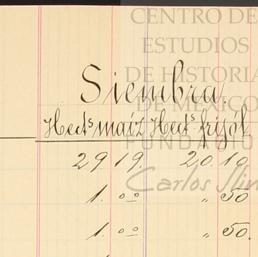 CENTRO DE
ESTUDIOS
DE HISTORIA
DE MÉXICO
FUNDACIÓN
Carlos Slim
Siembra.
Hects maíz Hects frijól.
29 19. 20. 19.
1. 00 „ 50.
1. 00 „ 50.